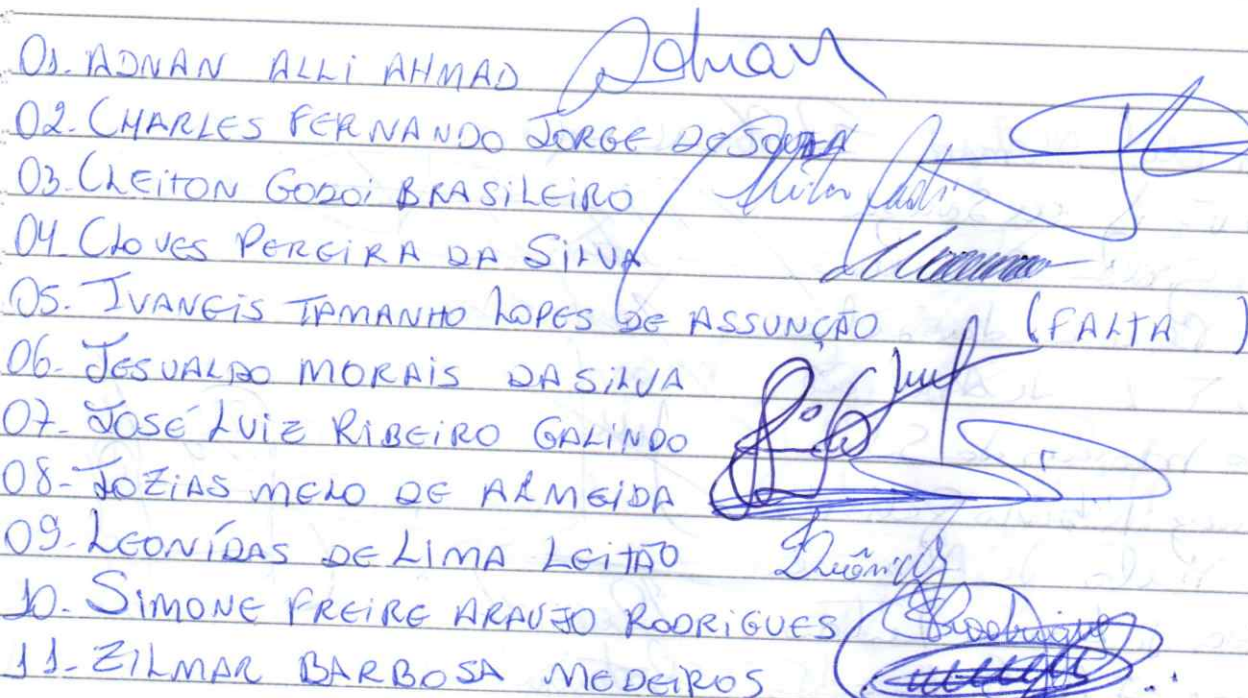 01. ADNAN ALLI AHMAD Adnan
02. CHARLES FERNANDO JORGE DE SOUZA
03. CLEITON GODOI BRASILEIRO
04. CLOVES PEREIRA DA SILVA
05. IVANEIS TAMANHO LOPES DE ASSUNÇÃO (FALTA)
06. JESUALDO MORAIS DA SILVA
07. JOSÉ LUIZ RIBEIRO GALINDO
08. JOZIAS MELO DE ALMEIDA
09. LEONÍDAS DE LIMA LEITÃO
10. SIMONE FREIRE ARAUJO RODRIGUES SRodrigues
11. ZILMAR BARBOSA MEDEIROS